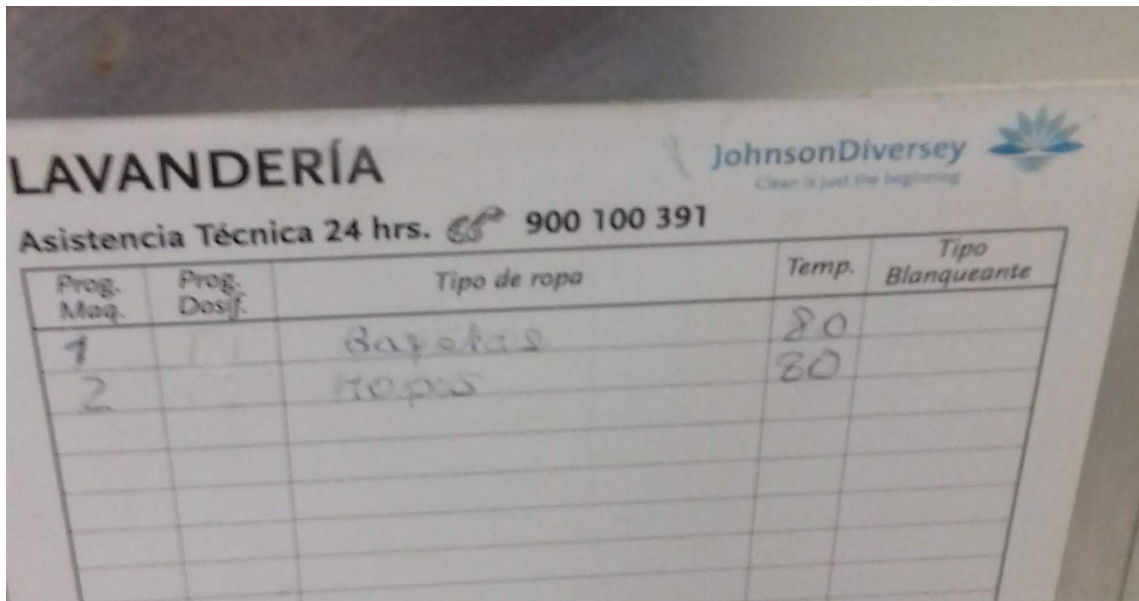 LAVANDERÍA
JohnsonDiversey
Clean is just the beginning
Asistencia Técnica 24 hrs. 900 100 391
Prog. Maq. Prog. Dosif. Tipo de ropa Temp. Tipo Blanqueante
1 Bayetas 80
2 Mopas 80